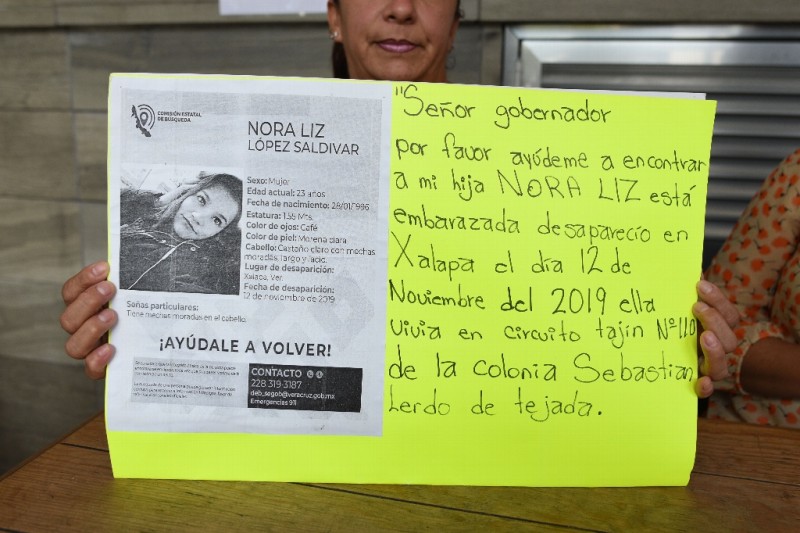 COMISIÓN ESTATAL
DE BÚSQUEDA
NORA LIZ
LÓPEZ SALDIVAR
Sexo: Mujer
Edad actual: 23 años
Fecha de nacimiento: 28/01/1996
Estatura: 1.55 Mts.
Color de ojos: Café
Color de piel: Morena clara
Cabello: Castaño claro con mechas
moradas, largo y lacio.
Lugar de desaparición:
Xalapa, Ver.
Fecha de desaparición:
12 de noviembre de 2019
Señas particulares:
Tiene mechas moradas en el cabello.
¡AYÚDALE A VOLVER!
CONTACTO
228 319-3187
deb_segob@veracruz.gob.mx
Emergencias 911
"Señor gobernador
por favor ayúdeme a encontrar
a mi hija NORA LIZ está
embarazada desapareció en
Xalapa el día 12 de
Noviembre del 2019 ella
vivia en circuito tajín Nº110
de la colonia Sebastian
Lerdo de tejada.